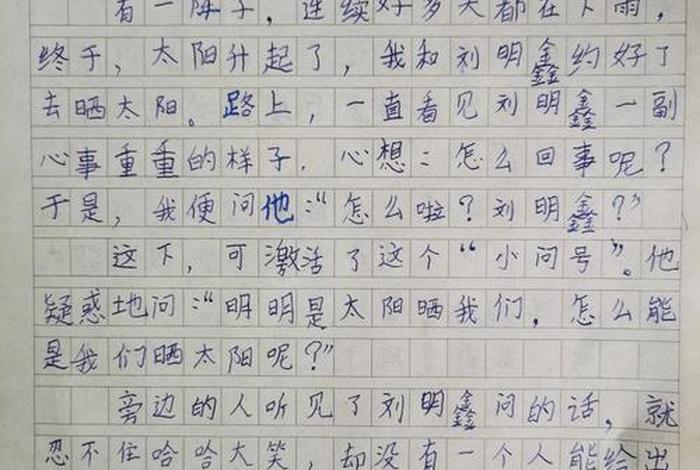 有一阵子，连续好多天都在下雨，
终于，太阳升起了，我和刘明鑫约好了
去晒太阳。路上，一直看见刘明鑫一副
心事重重的样子．心想：怎么回事呢？
于是，我便问他：“怎么啦？刘明鑫？”
这下，可激活了这个“小问号”。他
疑惑地问：“明明是太阳晒我们，怎么能
是我们晒太阳呢？”
旁边的人听见了刘明鑫问的话，就
忍不住哈哈大笑，却没有一个人能给出